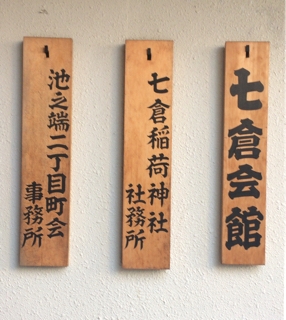 七倉会館
七倉稲荷神社
社務所
池之端二丁目町会
事務所